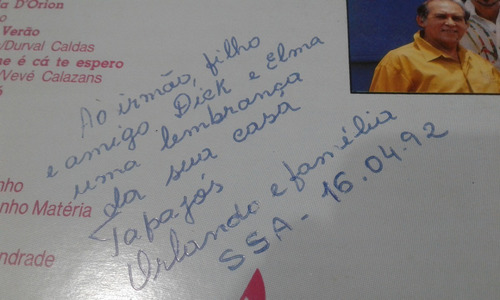 a D'Orion
o
Verão
/Durval Caldas
ne é cá te espero
/Vevé Calazans
Ao irmão, filho
e amigo. Dick e Elma
uma lembrança
da sua casa
Tapajós
Orlando e família
SSA - 16.04.92
nho
nho Matéria
ndrade